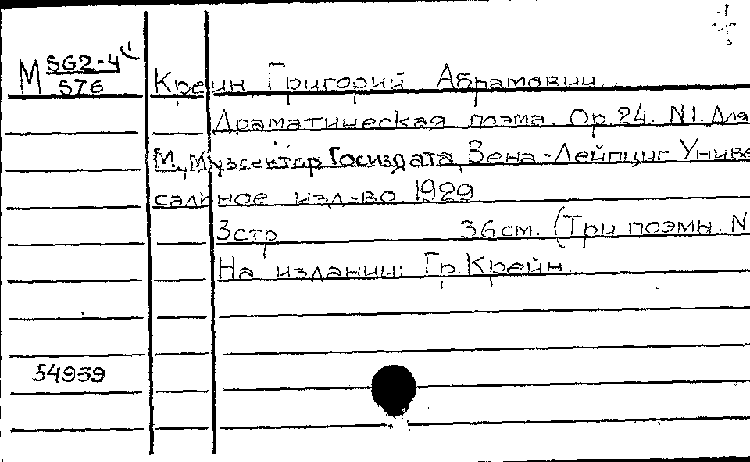 М 562-4
576
Крейн Григорий Абрамович.
Драматическая поэма. Op. 24. N1. Для
М., Музсектор Госиздата, Вена-Лейпциг Униве
сальное изд-во 1929
3стр 36см. (Три поэмы. N
На издании: Гр. Крейн.
54939